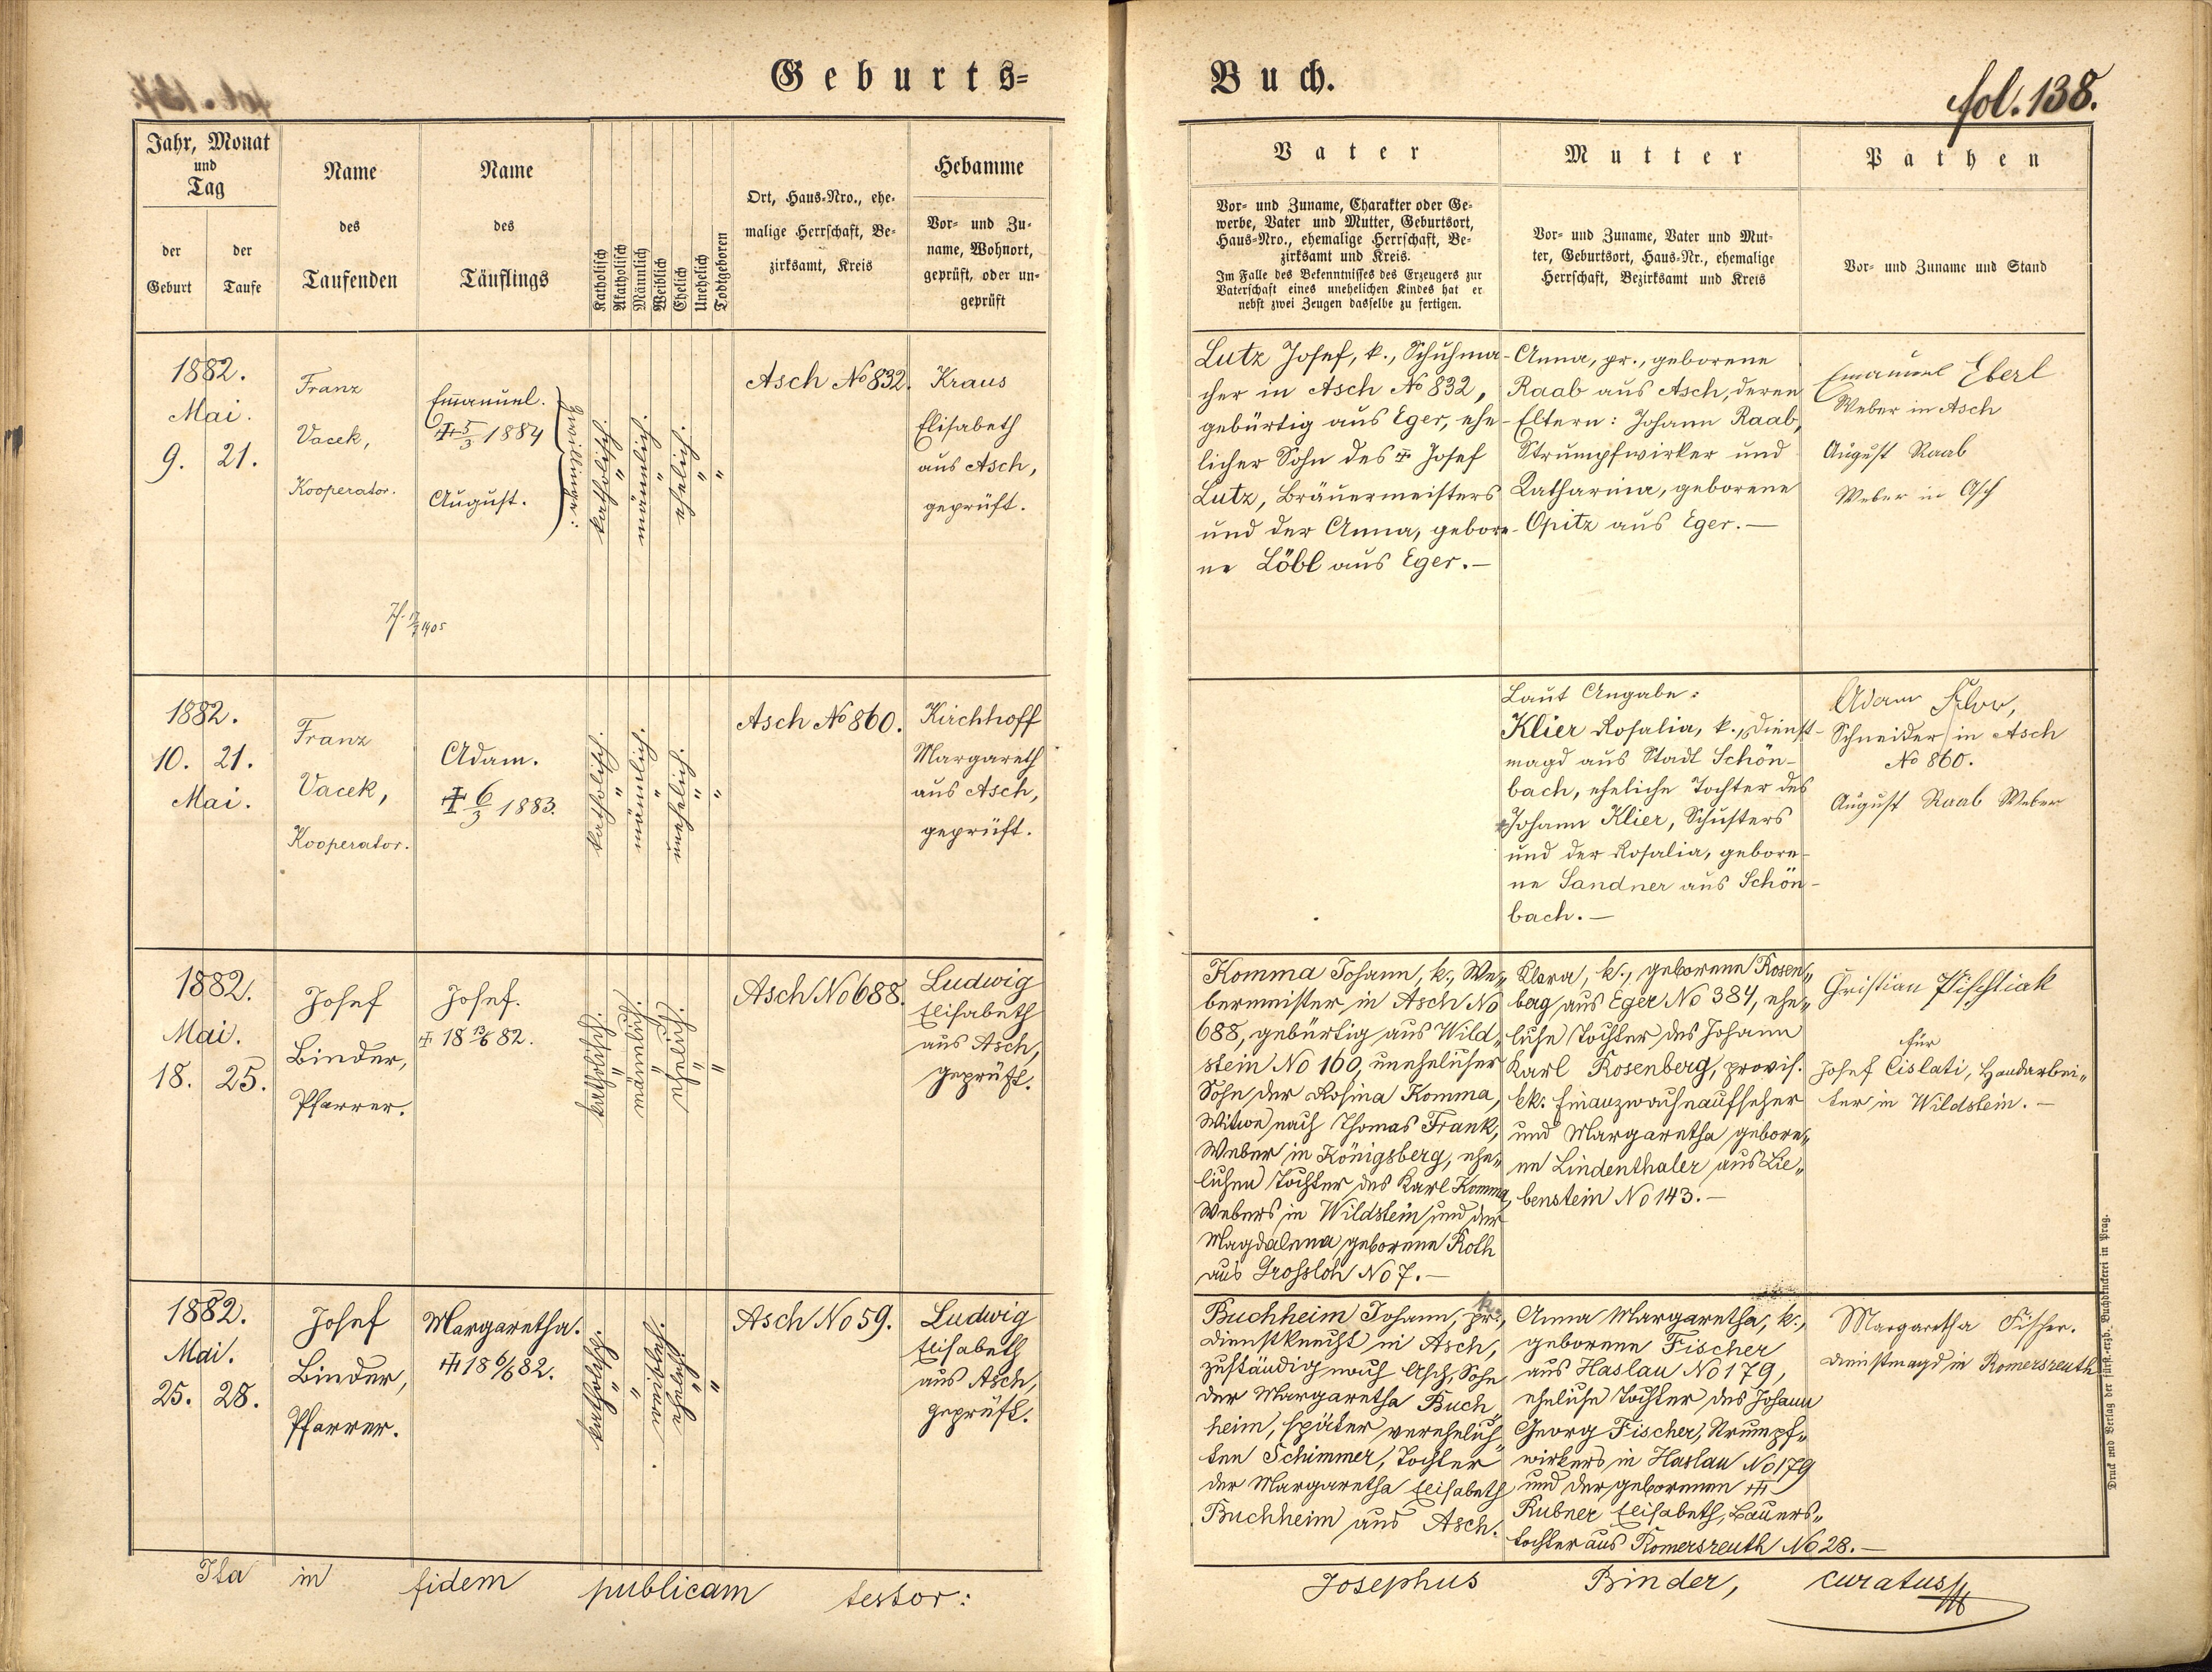 Geburts=
Buch.
fol. 138.
Jahr, Monat
und
Tag
der
Geburt
der
Taufe
Name
des
Taufenden
Name
des
Täuflings
Katholisch
Akatholisch
Männlich
Weiblich
Ehelich
Unehelich
Todtgeboren
Ort, Haus-Nro., ehe-
malige Herrschaft, Be-
zirksamt, Kreis
Hebamme
Vor- und Zu-
name, Wohnort,
geprüft, oder un-
geprüft
Vater
Vor- und Zuname, Charakter oder Ge-
werbe, Vater und Mutter, Geburtsort,
Haus-Nro., ehemalige Herrschaft, Be-
zirksamt und Kreis.
Im Falle des Bekenntnisses des Erzeugers zur
Vaterschaft eines unehelichen Kindes hat er
nebst zwei Zeugen dasselbe zu fertigen.
Mutter
Vor- und Zuname, Vater und Mut-
ter, Geburtsort, Haus-Nr., ehemalige
Herrschaft, Bezirksamt und Kreis
Pathen
Vor- und Zuname und Stand
1882.
Mai.
9. 21.
Franz
Vacek,
Kooperator.
Emanuel.
‡ 5/3 1884
August.
Zwillinge:
katholisch.
"
männlich.
"
ehelich.
"
"
Asch No 832.
Kraus
Elisabeth
aus Asch,
geprüft.
17/7 1905
Lutz Josef, k., Schuhma-
cher in Asch No 832,
gebürtig aus Eger, ehe-
licher Sohn des ‡ Josef
Lutz, Bräuermeisters
und der Anna, gebore-
ne Löbl aus Eger.—
Anna, pr., geborene
Raab aus Asch, deren
Eltern: Johann Raab,
Strumpfwirker und
Katharina, geborene
Opitz aus Eger.—
Emanuel Eberl
Weber in Asch
August Raab
Weber in Asch
1882.
10. 21.
Mai.
Franz
Vacek,
Kooperator.
Adam.
‡ 6/3 1883.
katholisch.
"
männlich.
"
unehelich.
"
"
Asch No 860.
Kirchhoff
Margareth
aus Asch,
geprüft.
Laut Angabe:
Klier Rosalia, k., Dienst-
magd aus Stadt Schön-
bach, eheliche Tochter des
‡Johann Klier, Schusters
und der Rosalia, gebore-
ne Sandner aus Schön-
bach.—
Adam
Schneider in Asch
No 860.
August Raab Weber
1882.
Mai.
18. 25.
Josef
Binder,
Pfarrer.
Josef.
‡ 18 13/6 82.
katholisch.
"
männlich.
"
ehelich.
"
"
Asch No 688.
Ludwig
Elisabeth
aus Asch,
geprüft.
Komma Johann, k., We-
bermeister in Asch No
688, gebürtig aus Wild-
stein No 160, unehelicher
Sohn der Rosina Komma,
Witwe nach Thomas Frank,
Weber in Königsberg, ehe-
lichen Tochter des Karl Komma,
Webers in Wildstein und der
Magdalena geborene Roth
aus Grossloh No 7.—
Klara, k., geborene Rosen-
berg aus Eger No 384, ehe-
liche Tochter des Johann
Karl Rosenberg, provis.
k.k. Finanzwachaufseher
und Margaretha gebore-
ne Lindenthaler aus Lie-
benstein No 143.—
Christian Pischtiak
für
Josef Cislati, Handarbei-
ter in Wildstein.—
1882.
Mai.
25. 28.
Josef
Binder,
Pfarrer.
Margaretha.
‡ 18 6/6 82.
katholisch.
"
"
weiblich.
ehelich.
"
"
Asch No 59.
Ludwig
Elisabeth
aus Asch,
geprüft.
Buchheim Johann, pr., k.
Dienstknecht in Asch,
zuständig nach Asch, Sohn
der Margaretha Buch-
heim, später verehelich-
ten Schimmer, Tochter
der Margaretha Elisabeth
Buchheim aus Asch.
Anna Margaretha, k.,
geborene Fischer
aus Haslau No 179,
eheliche Tochter des Johann
Georg Fischer, Strumpf-
wirkers in Haslau No 179
und der geborenen ‡
Rubner Elisabeth, Bauers-
tochter aus Romersreuth No 28.—
Margaretha Fischer.
Dienstmagd in Romersreuth
Druck und Verlag der fürst.-erzb. Buchdruckerei in Prag.
Ita in fidem publicam testor:
Josephus Binder, curatus